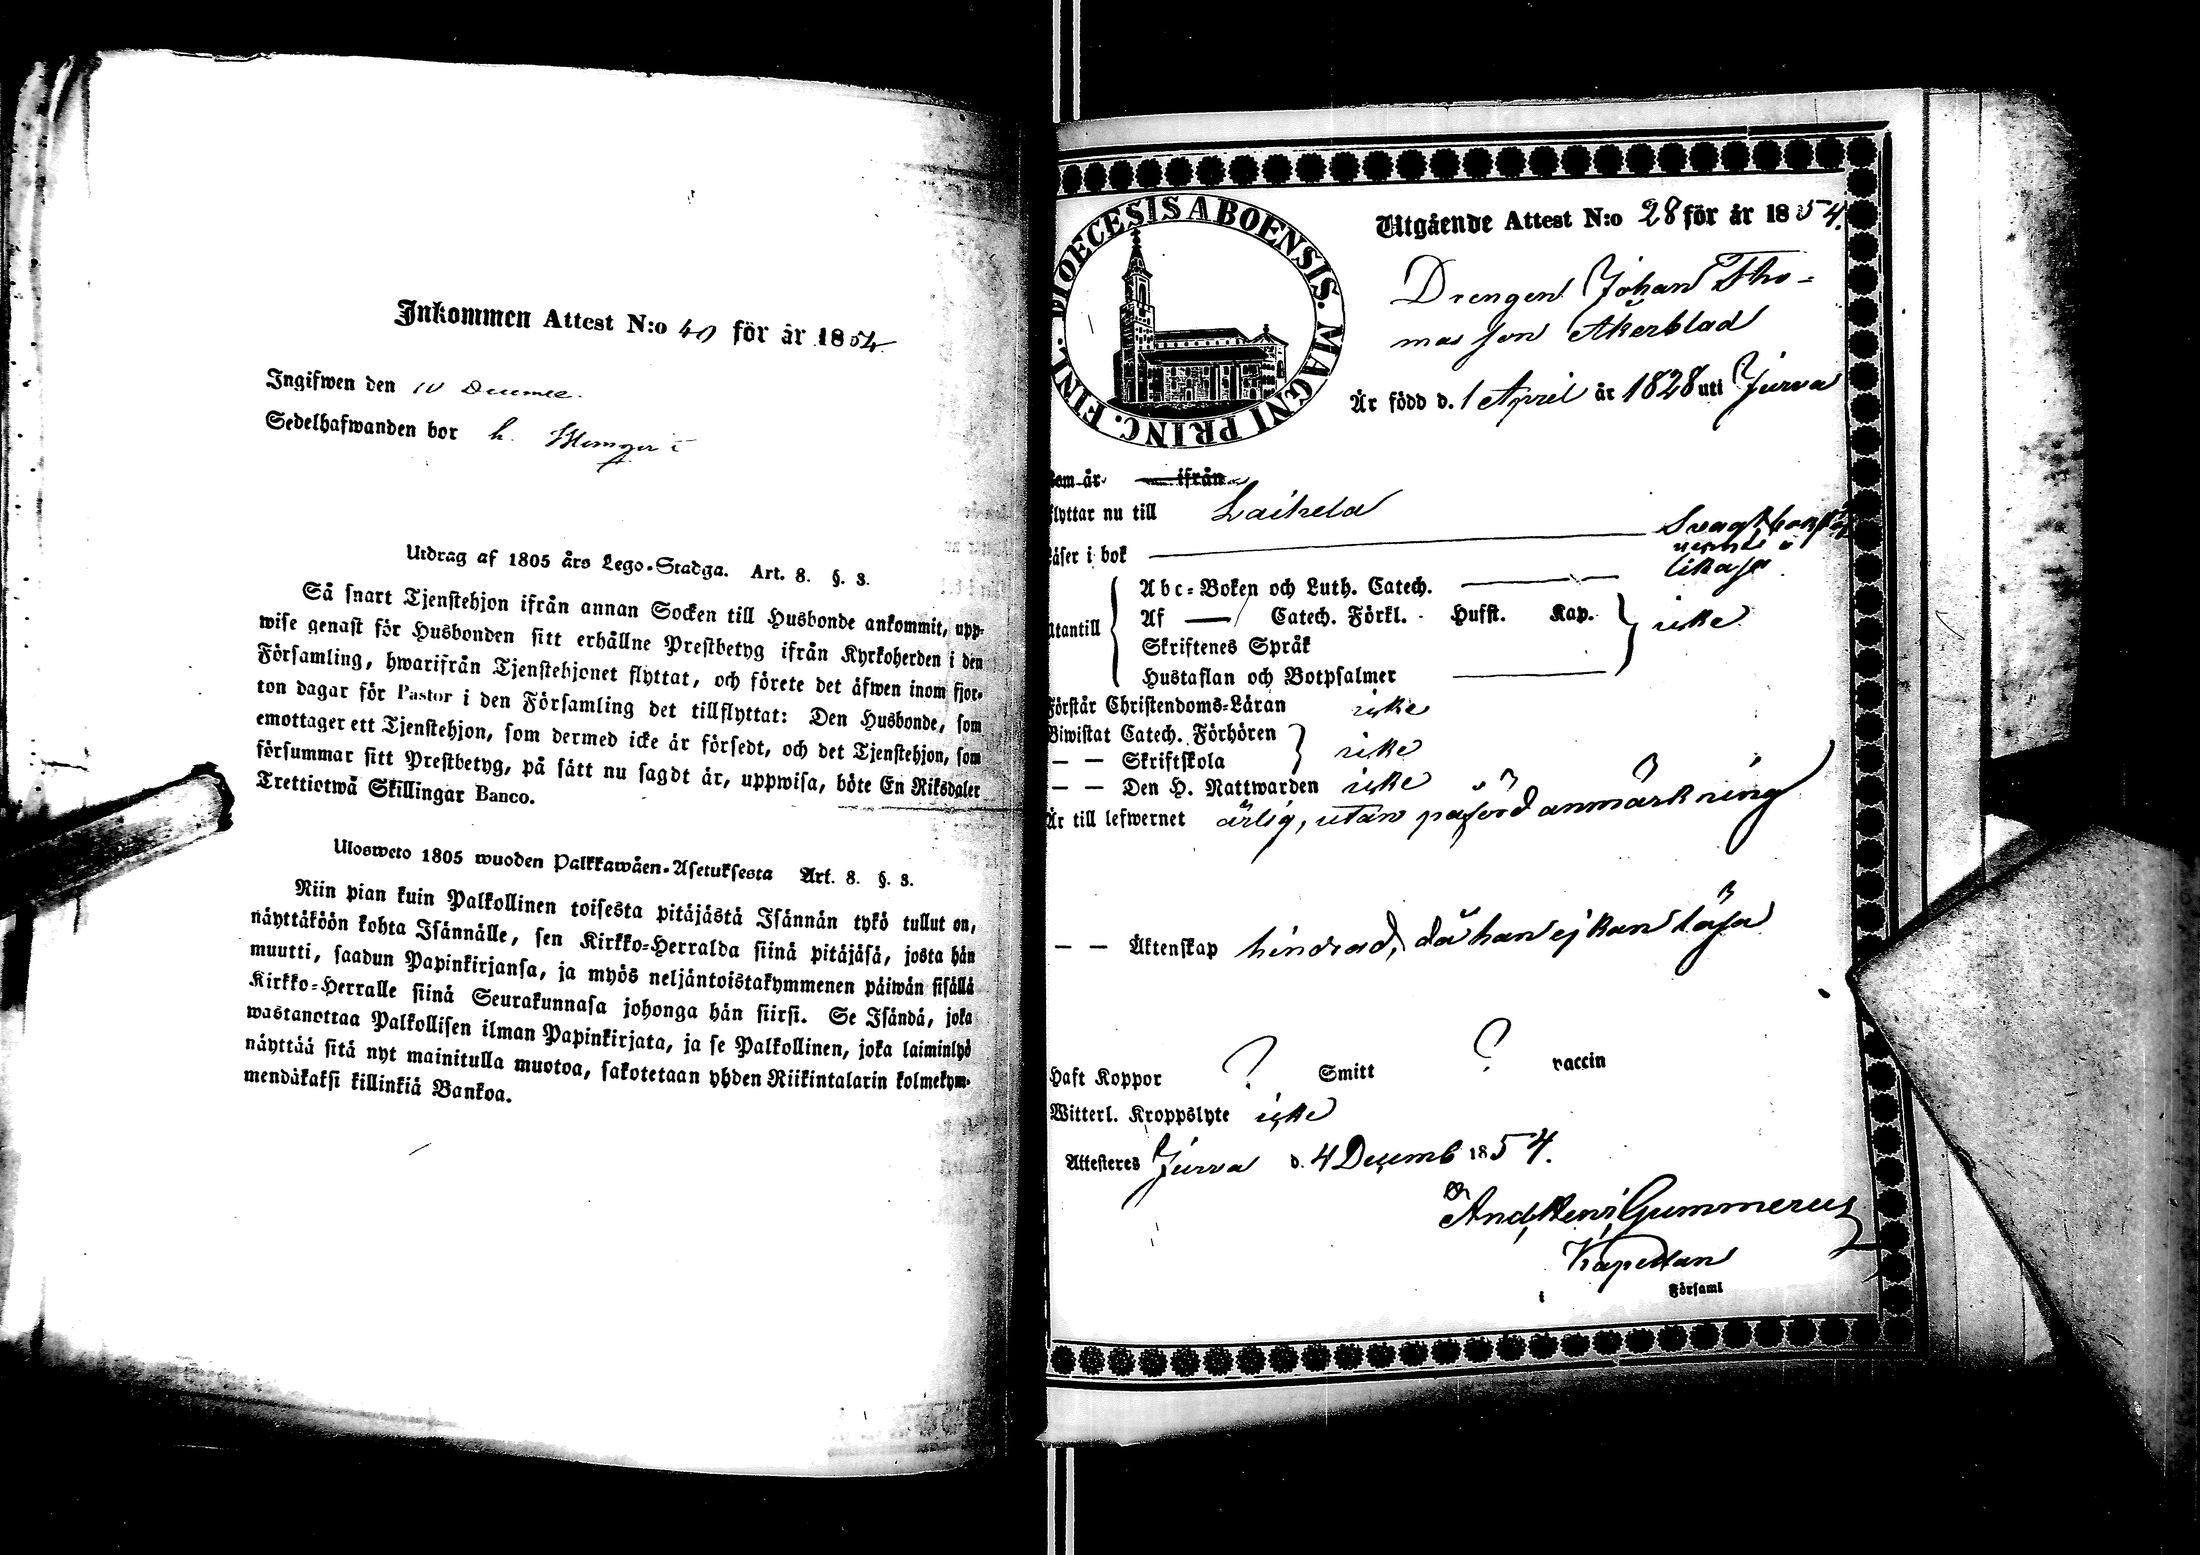 Inkommen Attest N:o 40 för år 1854.
Ingifwen den 10 Decembe.
Sedelhafwanden bor h.
Utdrag af 1805 års Lego-Stadga. Art. 8. §. 3.
Så snart Tjenstehjon ifrån annan Socken till Husbonde ankommit, upp-
wise genast för Husbonden sitt erhållne Prestbetyg ifrån Kyrkoherden i den
Församling, hwarifrån Tjenstehjonet flyttat, och förete det äfwen inom fjor-
ton dagar för Pastor i den Församling det tillflyttat: Den Husbonde, som
emottager ett Tjenstehjon, som dermed icke är försedt, och det Tjenstehjon, som
försummar sitt Prestbetyg, på sätt nu sagdt är, uppwisa, böte En Riksdaler
Trettiotwå Skillingar Banco.
Ulosweto 1805 wuoden Palkkawäen-Asetuksesta Art. 8. §. 3.
Niin pian kuin Palkollinen toisesta pitäjästä Isännän tykö tullut on,
näyttäköön kohta Isännälle, sen Kirkko-Herralda siinä pitäjäsä, josta hän
muutti, saadun Papinkirjansa, ja myös neljäntoistakymmenen päiwän sisällä
Kirkko-Herralle siinä Seurakunnasa johonga hän siirsi. Se Isändä, joka
wastanottaa Palkollisen ilman Papinkirjata, ja se Palkollinen, joka laiminlyö
näyttää sitä nyt mainitulla muotoa, sakotetaan yhden Riikintalarin kolmekym-
mendäkaksi killinkiä Bankoa.
DIOECESIS ABOENSIS. MAGNI PRINC. FINL.
Utgående Attest N:o 28 för år 1854.
Drengen Johan Tho-
mas son Åkerblad
Är född d. 1 April år 1828 uti Jurva
kom år ifrån
flyttar nu till Laihela
Läser i bok Svagt
likaså
Abc-Boken och Luth. Catech.
Utantill Af Catech. Förkl. Hufst. Kap. icke
Skriftenes Språk
Hustaflan och Botpsalmer
Förstår Christendoms-Läran icke
Biwistat Catech. Förhören
— — Skriftskola icke
— — Den H. Nattwarden icke
Är till lefwernet ärlig, utan påförd anmärkning
— — Äktenskap hindrad, då han ej kan läsa
Haft Koppor ? Smitt ? vaccin
Witterl. Kroppslyte icke
Attesteres Jurva d. 4 Decemb 1854.
And, Henr, Gummerus
Kapellan
i Församl